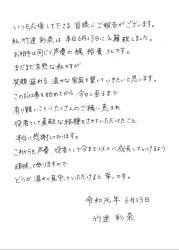 いつも応援して下さる皆様にご報告がございます。
私、竹達彩奈は本日6月23日に入籍致しました。
お相手は同じく声優の梶裕貴さんです。
まだまだ未熟な私ですが
笑顔溢れる温かな家庭を築いていきたいと思います。
このお仕事を始めてから、今日に至るまで
有り難いことにたくさんのご縁に恵まれ
役者として素敵な経験をさせていただけたこと
本当に感謝しております。
これからも声優、役者として今まで以上に成長していけるよう
精進して参りますので
どうか温かく見守っていただけると幸いです。
令和元年 6月23日
竹達 彩奈